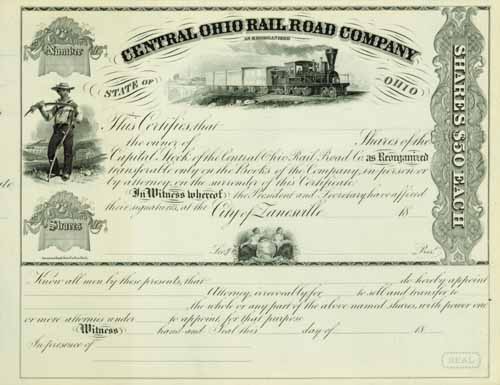 Number
CENTRAL OHIO RAIL ROAD COMPANY
AS REORGANIZED
STATE OF OHIO
SHARES $50 EACH
This Certifies, that
the owner of Shares of the
Capital Stock of the Central Ohio Rail Road Co. as Reorganized
transferable only on the Books of the Company, in person or
by attorney, on the surrender of this Certificate.
In Witness whereof the President and Secretary have affixed
their signatures, at the City of Zanesville 18
Shares
Sec. Pres.
Know all men by these presents, that do hereby appoint
Attorney, irrevocably, for to sell and transfer to
the whole or any part of the above named shares, with power one
or more attornies under to appoint, for that purpose
Witness hand and Seal this day of 18
In presence of
SEAL